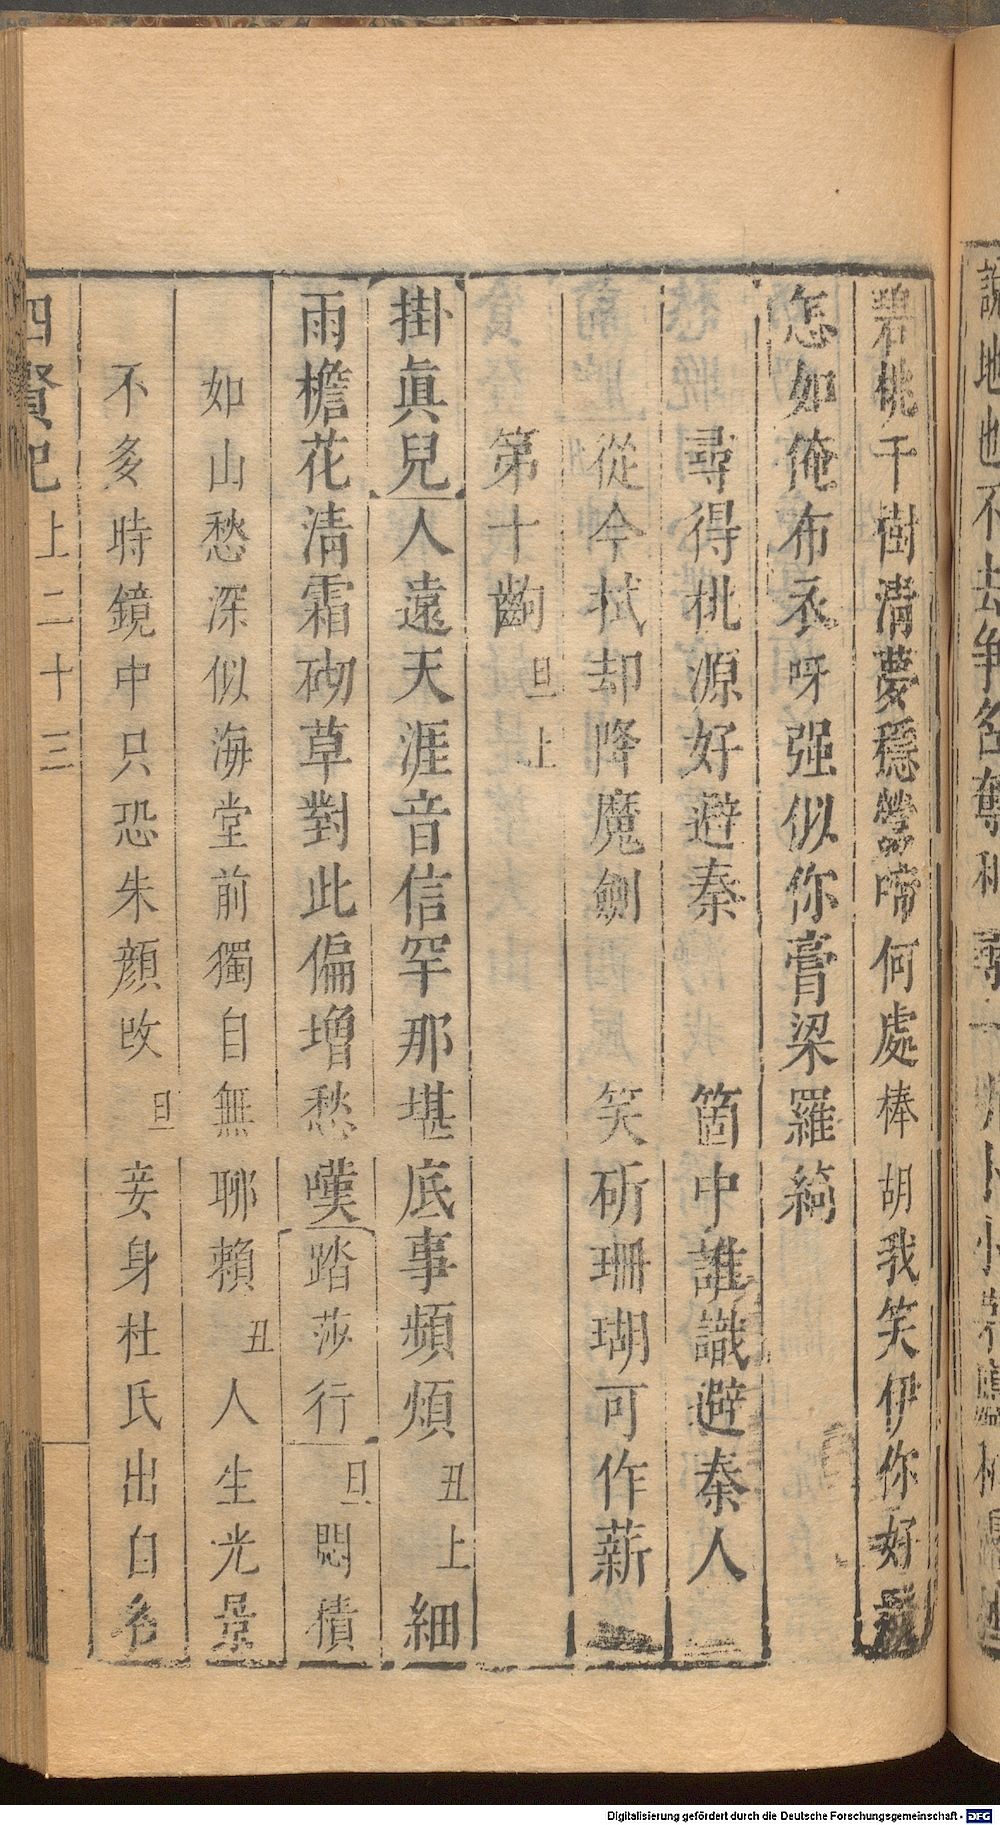 說地也不去爭名奪利尋一
碧桃千樹溝夢穩鶯啼何處棒胡我笑伊你好
怎如俺布衣呀强似你膏梁羅綺
尋得桃源好避秦　箇中誰識避秦人
從今拭却降魔劍　笑斫珊瑚可作薪
第十齣旦上
掛眞兒人遠天涯音信罕那堪底事頻煩丑上細
雨檐花淸霜砌草對此偏增愁嘆踏莎行旦悶積
如山愁深似海堂前獨自無聊賴丑人生光景
不多時鏡中只恐朱顔改旦妾身杜氏出自名
四賢記上二十三
Digitalisierung gefördert durch die Deutsche Forschungsgemeinschaft - DFG